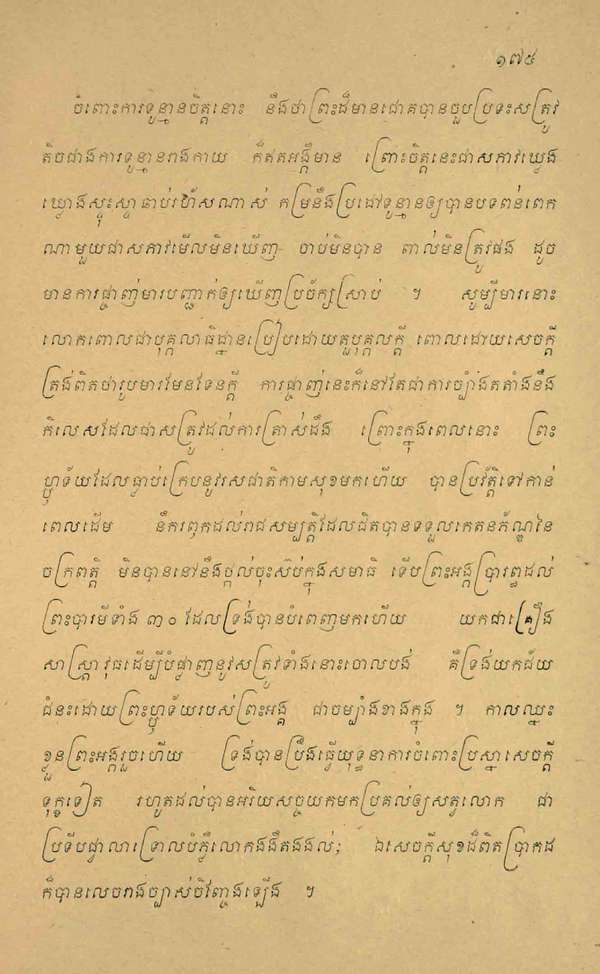 ១៧៥
ចំពោះការទូន្មានចិត្តនោះ នឹងថាព្រះដ៏មានជោគបានជួបប្រទះសត្រូវ
តិចជាងការទូន្មានរាងកាយ ក៏ឥតអង្គីមាន ព្រោះចិត្តនេះជាសភាវឃ្លេង
ឃ្លោងស្ទុះស្ទាឆាប់រហ័សណាស់ កម្រនឹងប្រដៅទូន្មានឲ្យបានបទពន់ពេក
ណាមួយជាសភាវមើលមិនឃើញ ចាប់មិនបាន ពាល់មិនត្រូវផង ដូច
មានការផ្ចាញ់មារបញ្ជាក់ឲ្យឃើញប្រច័ក្សស្រាប់ ។ សូម្បីមារនោះ
លោកពោលជាបុគ្គលាធិដ្ឋានប្រៀបដោយតួបុគ្គលក្តី ពោលដោយសេចក្តី
ត្រង់ពិតថារូបមារមែនទែនក្តី ការផ្ចាញ់នេះក៏នៅតែជាការច្បាំងតតាំងនឹង
កិលេសដែលជាសត្រូវដល់ការត្រាស់ដឹង ព្រោះក្នុងពេលនោះ ព្រះ
ហ្ឫទ័យដែលធ្លាប់ក្រេបនូវរសជាតិកាមសុខមកហើយ បានប្រវ័ត្តិទៅកាន់
ពេលដើម នឹករពុកដល់រាជសម្បត្តិដែលជិតបានទទួលកេតនភ័ណ្ឌនៃ
ចក្រពត្តិ មិនបាននៅនឹងថ្កល់ចុះស៊ប់ក្នុងសមាធិ ទើបព្រះអង្គប្រារព្ធដល់
ព្រះបារមីទាំង ៣០ ដែលទ្រង់បានបំពេញមកហើយ យកជាគ្រឿង
សាស្ត្រាវុធដើម្បីបំផ្លាញនូវសត្រូវទាំងនោះចោលបង់ គឺទ្រង់យកជ័យ
ជំនះដោយព្រះហ្ឫទ័យរបស់ព្រះអង្គ ជាចម្បាំងខាងក្នុង ។ កាលឈ្នះ
ខ្លួនព្រះអង្គរួចហើយ ទ្រង់បានប្រឹងធ្វើយុទ្ធនាការចំពោះប្រស្នាសេចក្តី
ទុក្ខទៀត រហូតដល់បានអរិយសច្ចយកមកប្រគល់ឲ្យសត្វលោក ជា
ប្រទីបជ្វាលាទ្រោលបំភ្លឺលោកងងឹតងងល់; ឯសេចក្តីសុខដ៏ពិតប្រាកដ
ក៏បានលេចរាងច្បាស់ចិញ្ចែងឡើង ។